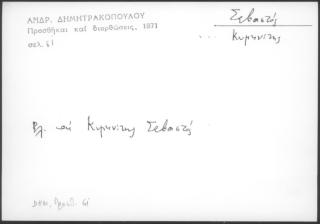 ΑΝΔΡ. ΔΗΜΗΤΡΑΚΟΠΟΥΛΟΥ
Προσθῆκαι καὶ διορθώσεις, 1871
σελ. 61
Σεβαστός
... Κυμινήτης
Βλ. καὶ Κυμινήτης Σεβαστός
Δημ., Προσθ. 61